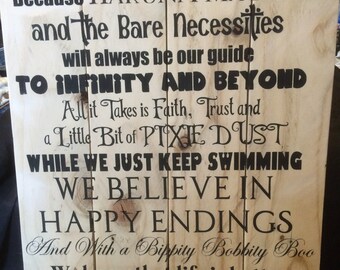 Because HAKUNA
and the Bare Necessities
will always be our guide
TO INFINITY AND BEYOND
All it Takes is Faith, Trust and
a Little Bit of PIXIE DUST
WHILE WE JUST KEEP SWIMMING
WE BELIEVE IN
HAPPY ENDINGS
And With a Bippity Bobbity Boo